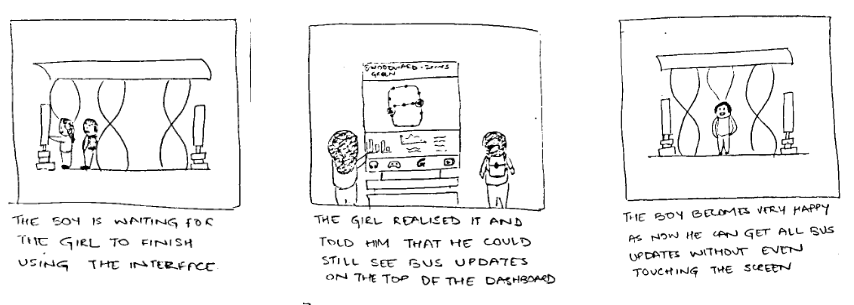 THE BOY IS WAITING FOR
THE GIRL TO FINISH
USING THE INTERFACE.
GREEN
THE GIRL REALISED IT AND
TOLD HIM THAT HE COULD
STILL SEE BUS UPDATES
ON THE TOP OF THE DASHBOARD
THE BOY BECOMES VERY HAPPY
AS NOW HE CAN GET ALL BUS
UPDATES WITHOUT EVEN
TOUCHING THE SCREEN